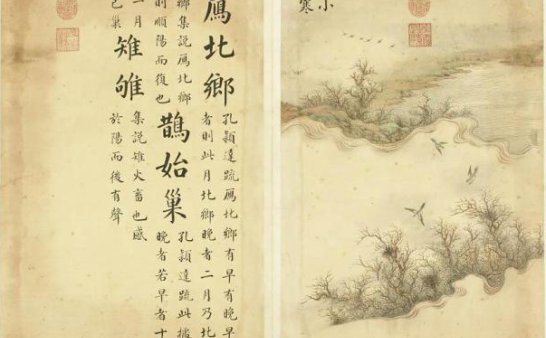 小寒
鴈北鄉
孔穎達疏鴈北鄉有早有晚早
者則此月北鄉晚者二月乃北
鄉集說鴈北鄉
則順陽而復也
鵲始巢
孔穎達疏此據
晚者若早者十
二月
已巢
雉雊
集說雉火畜也感
於陽而後有聲